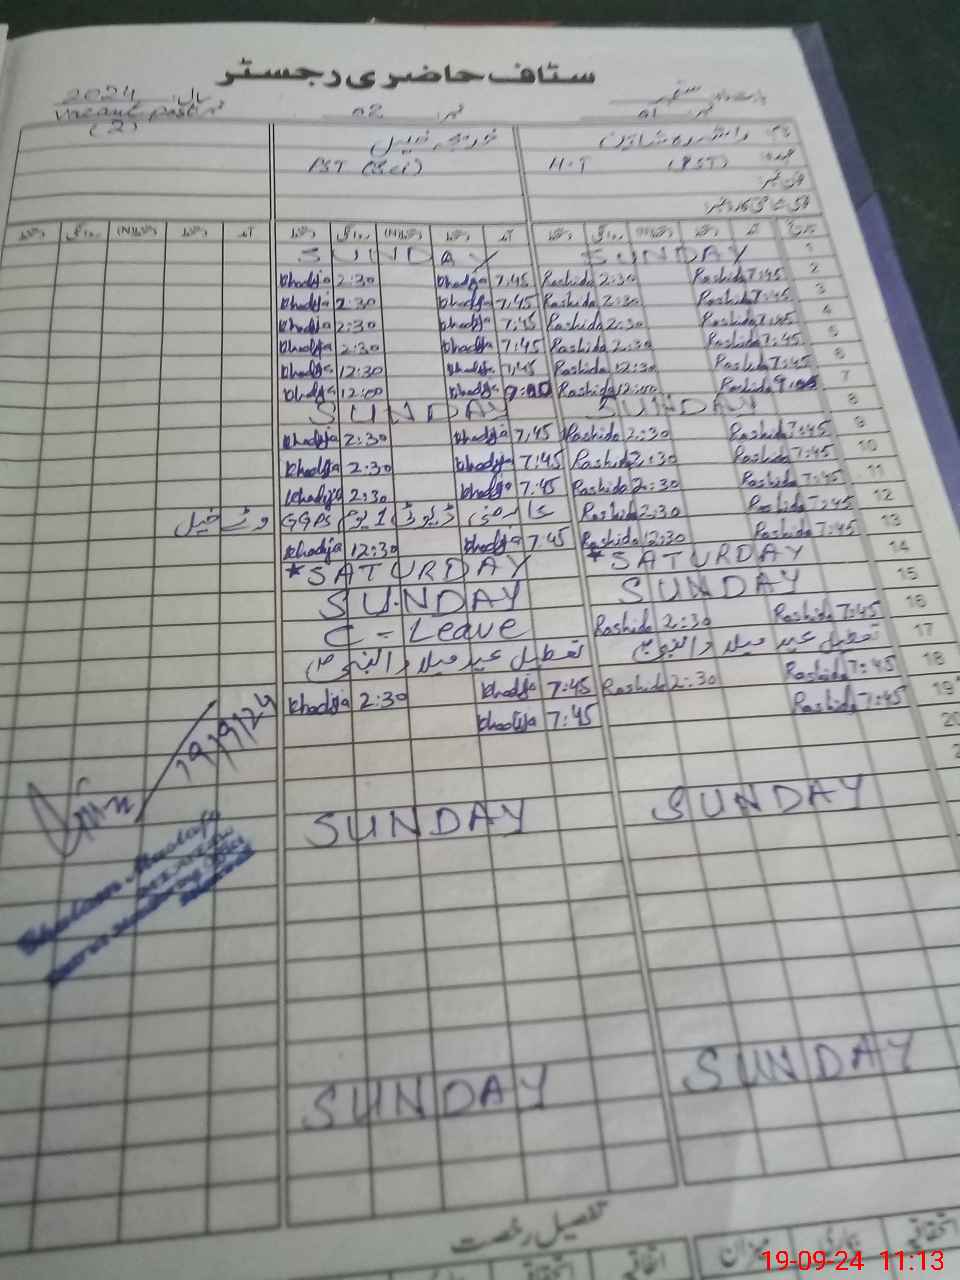 سٹاف حاضری رجسٹر
ستمبر سال 2024
نمبر 01 نمبر 02 Vacant post (2)
نام راشدہ شاہین خدیجہ
عہدہ H.T (PST) PST (Sci)
تاریخ آمد دستخط دستخط (N) روانگی دستخط آمد دستخط دستخط (N) روانگی دستخط آمد دستخط دستخط (N) روانگی دستخط
1 SUNDAY SUNDAY
2 Khadija 2:30 Khadija 7:45 Rashida 2:30 Rashida 7:45
3 Khadija 2:30 Khadija 7:45 Rashida 2:30 Rashida 7:45
4 Khadija 2:30 Khadija 7:45 Rashida 2:30 Rashida 7:45
5 Khadija 2:30 Khadija 7:45 Rashida 2:30 Rashida 7:45
6 Khadija 12:30 Khadija 7:45 Rashida 12:30 Rashida 7:45
7 Khadija 12:00 Khadija 9:00 Rashida 12:00 Rashida 9:00
8 SUNDAY SUNDAY
9 Khadija 2:30 Khadija 7:45 Rashida 2:30 Rashida 7:45
10 Khadija 2:30 Khadija 7:45 Rashida 2:30 Rashida 7:45
11 Khadija 2:30 Khadija 7:45 Rashida 2:30 Rashida 7:45
12 عارضی ڈیوٹی 1 یوم GGPS Rashida 2:30 Rashida 7:45
13 Khadija 12:30 Khadija 7:45 Rashida 12:30 Rashida 7:45
14 *SATURDAY *SATURDAY
15 SUNDAY SUNDAY
16 C-Leave Rashida 2:30 Rashida 7:45
17 تعطیل عید میلاد النبی تعطیل عید میلاد النبی
18 Khadija 2:30 Khadija 7:45 Rashida 2:30 Rashida 7:45
19 Khadija 7:45 Rashida 7:45
20
19/9/24
SUNDAY SUNDAY
Ghulam Mustafa
SUNDAY SUNDAY
تفصیل رخصت
اتفاقیہ استحقاقیہ اتفاقیہ میزان بیماری استحقاقیہ
19-09-24 11:13